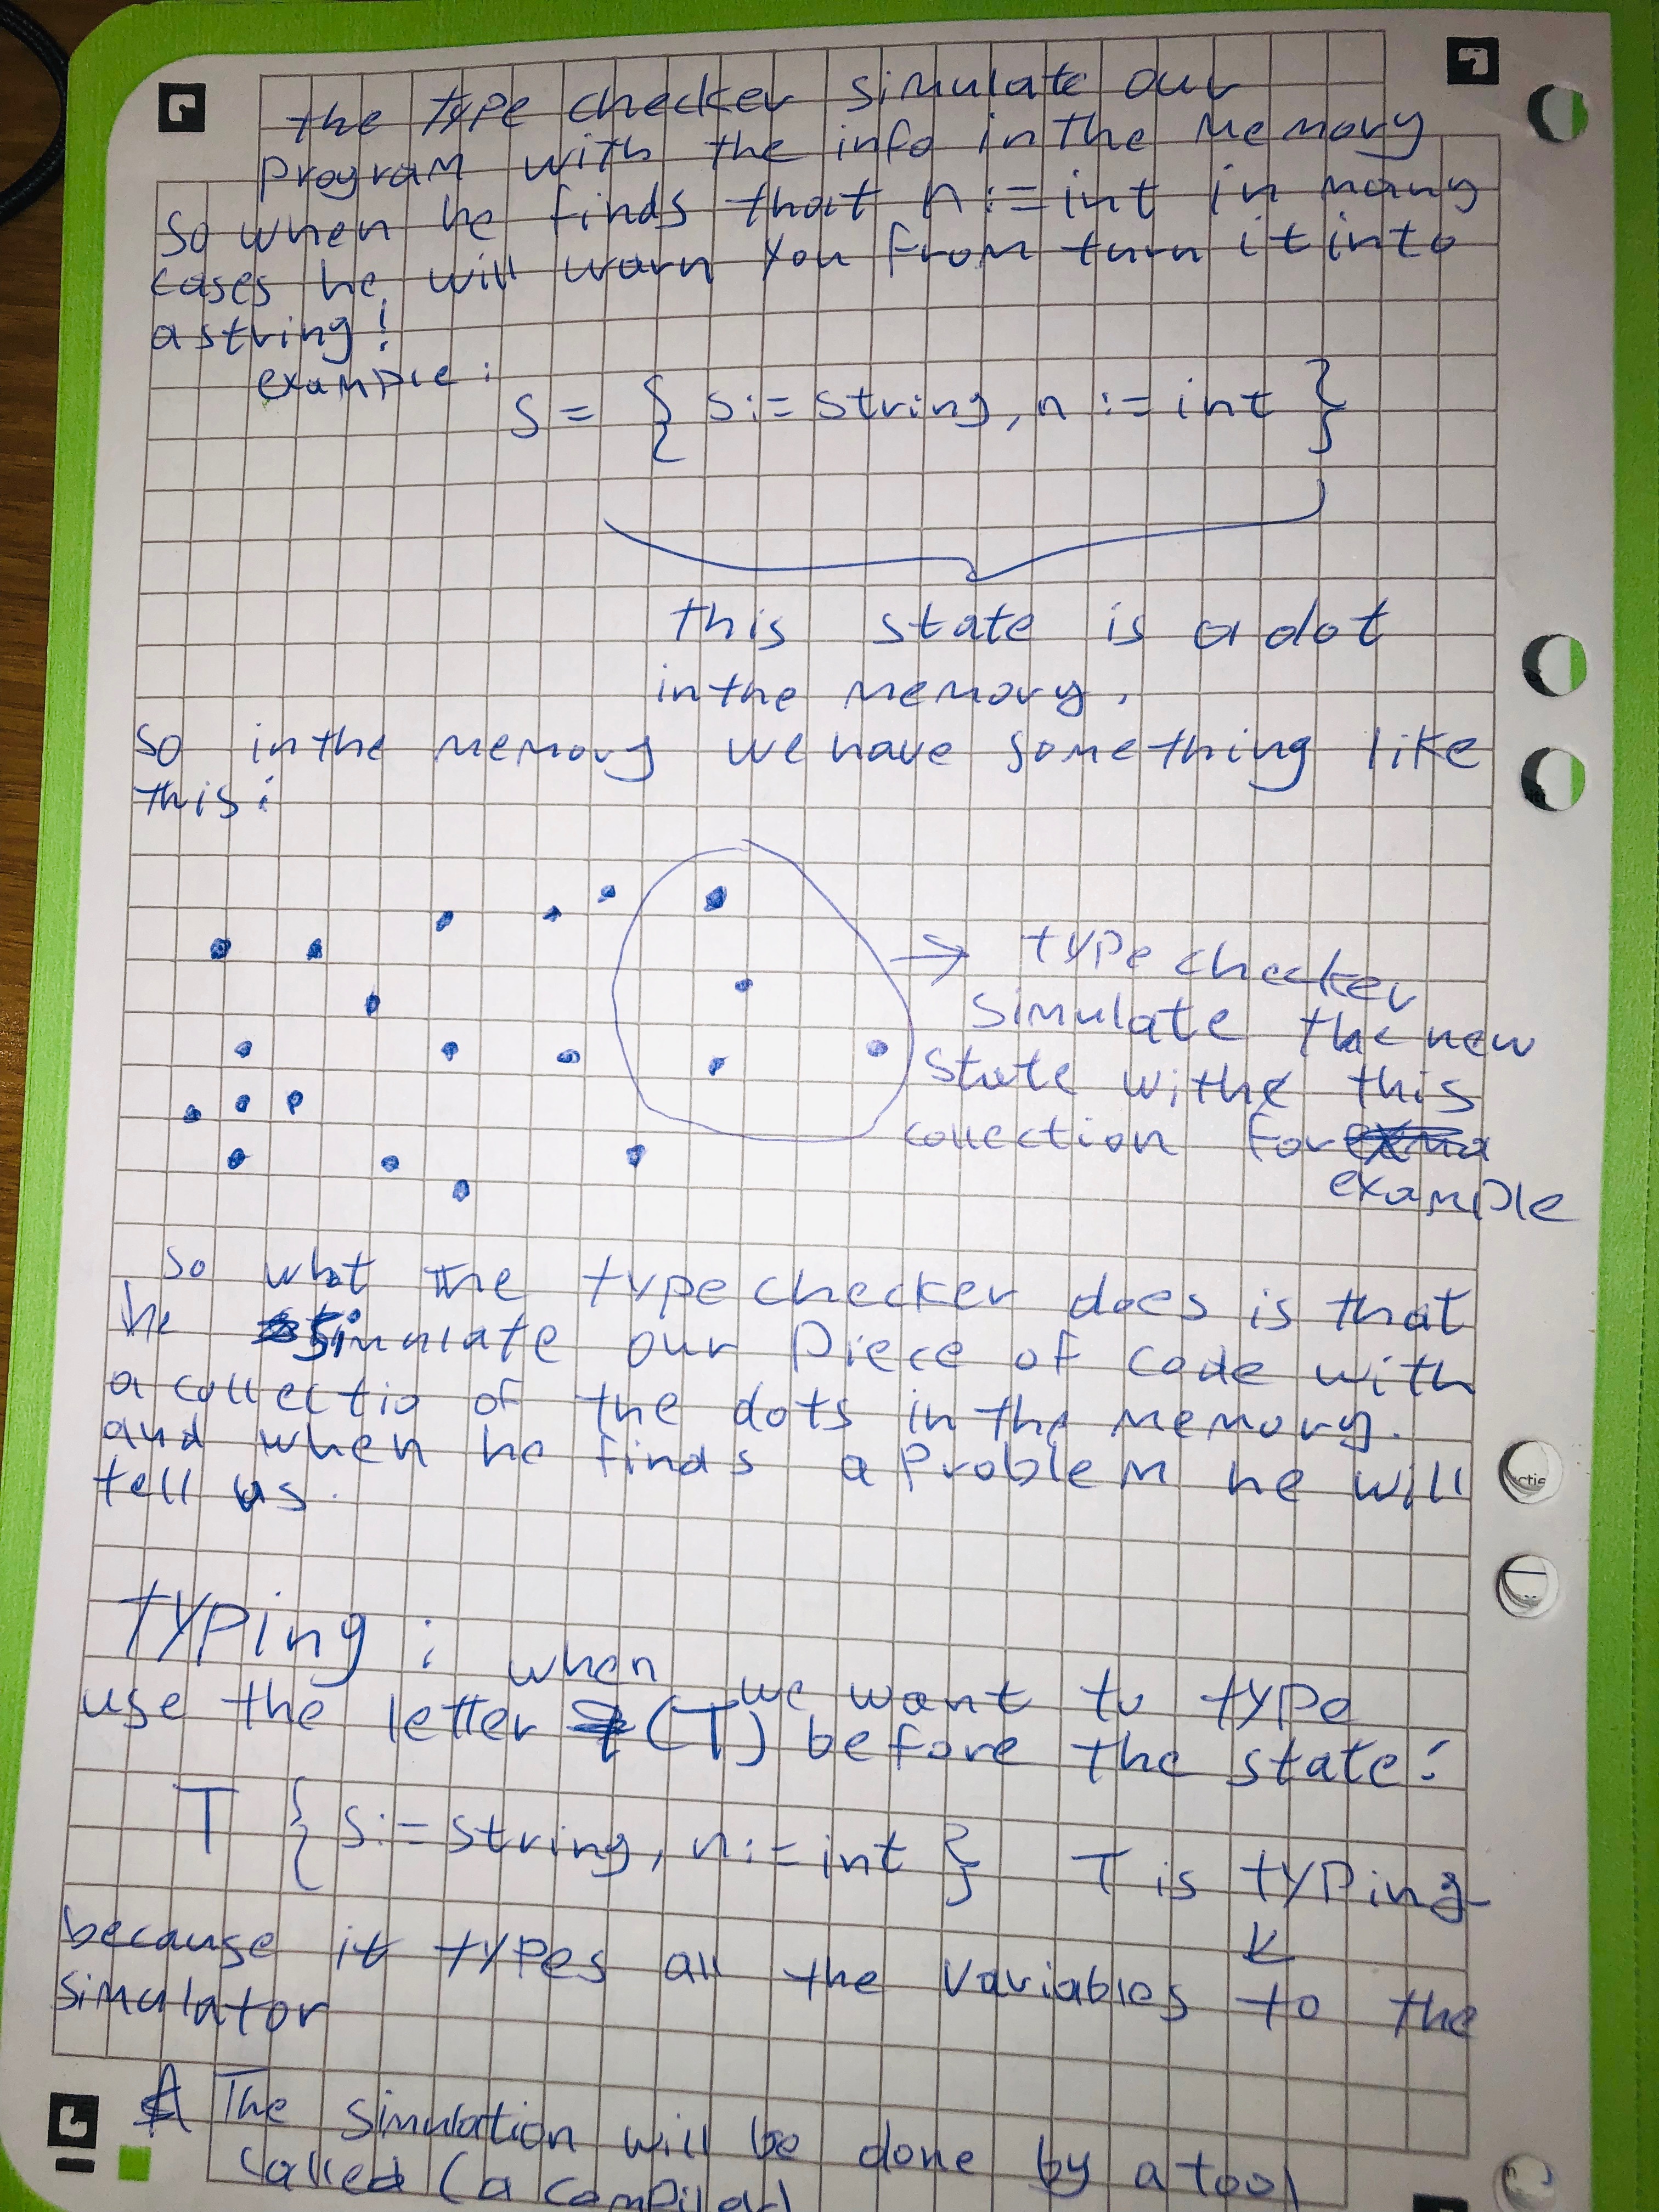 the type checker simulate our
program with the info in the memory
so when he finds that n := int in many
cases he will warn you from turn it into
a string!
example:
S = { s := string, n := int }
this state is a dot
in the memory.
so in the memory we have something like
this:
→ type checker
simulate the new
state withe this
collection for
example
so what the type checker does is that
he simulate our piece of code with
a collectio of the dots in the memory.
and when he finds a problem he will
tell us.
typing : when we want to type
use the letter (T) before the state:
T { s := string, n := int } T is typing
because it types all the variables to the
simulator
The simulation will be done by a tool
called (a compiler)